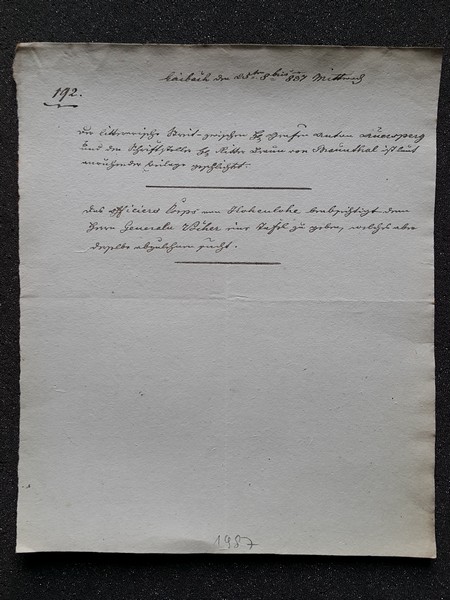 Laibach den 18ten 8ber 837 Mittwoch
192.
Der litterarische Streit zwischen H Grafen Anton Auersperg
und dem Schriftsteller H Ritter Braun von Braunthal ist laut
anruhender Beilage geschlichtet.
Das Officiers Corps von Hohenlohe beabsichtigt dem
Herrn Generalen eine Tafel zu geben, welche aber
derselbe abzulehnen sucht.
1987